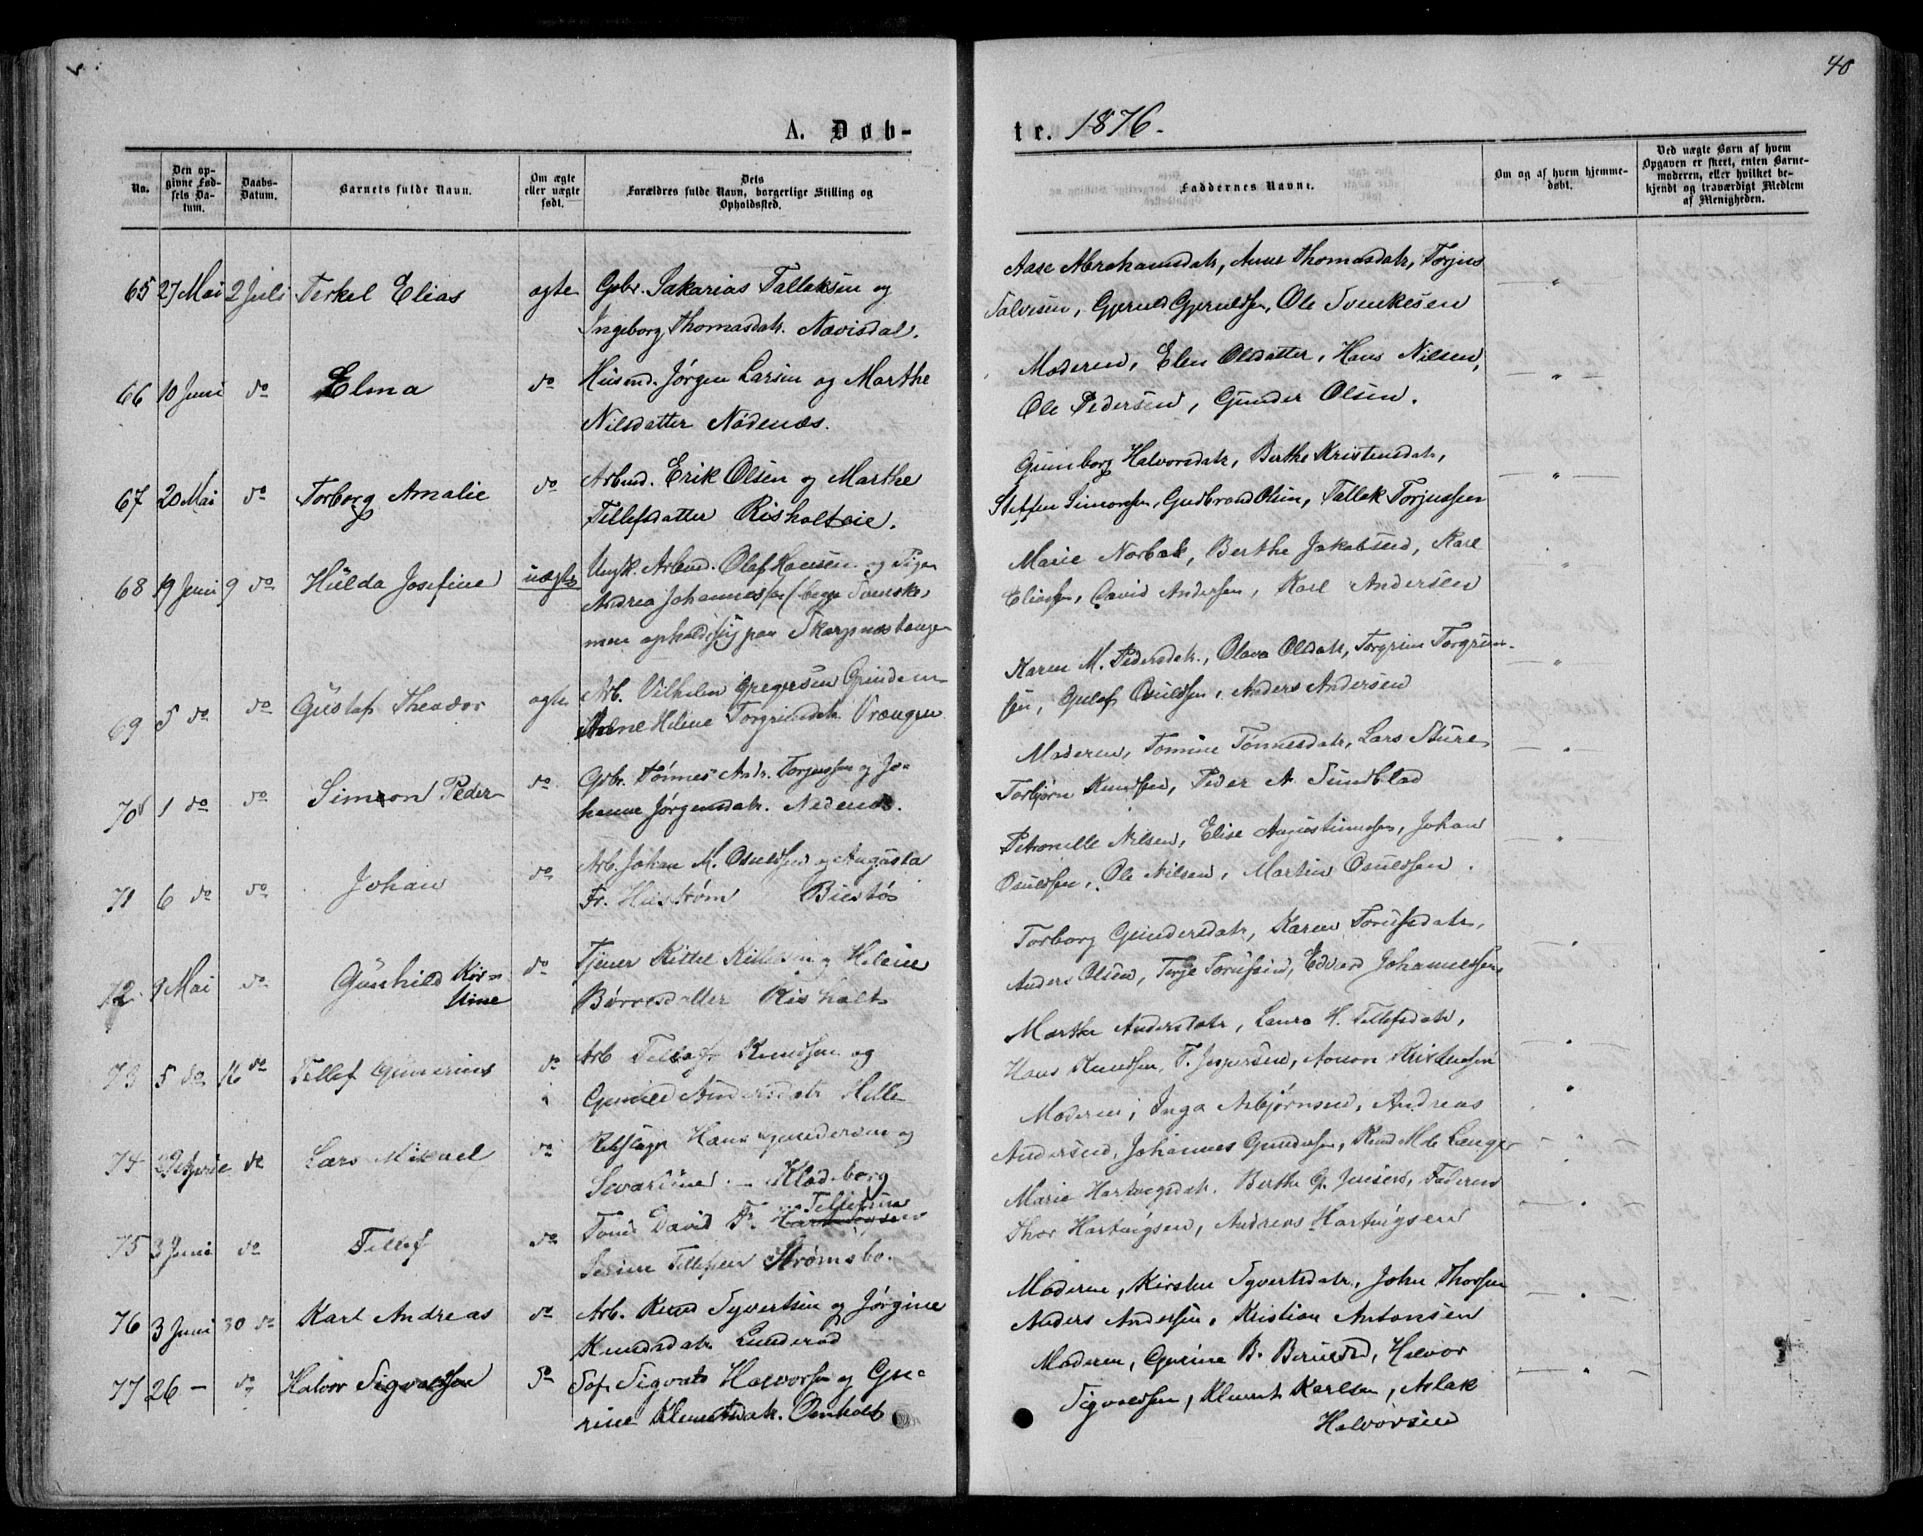 40
A. Døb-
te. 1876.
No.
Den op-
givne Fød-
sels Da-
tum.
Daabs-
Datum.
Barnets fulde Navn.
Om ægte
eller uægte
født.
Dets
Forældres fulde Navn, borgerlige Stilling og
Opholdssted.
Faddernes Navne.
Om og af hvem hjemme-
døbt.
Ved uægte Børn af hvem
Opgaven er skeet, enten Barne-
moderen, eller hvilket be-
kjendt og troværdigt Medlem
af Menigheden.
65 27 Mai 2 Juli Terkel Elias ægte Gbr. Sakarias Tallaksen og
Ingeborg Thomasdatr. Nævisdal.
Aase Abrahamsdatr, Anne Thomasdatr, Torjus
Salvesen, Gjeruld Gjeruldsen, Ole Svenkesen
66 10 Juni do Elma do Husmd. Jørgen Larsen og Marthe
Nilsdatter Nødenæs.
Moderen, Elen Olsdatter, Hans Nilsen,
Ole Pedersen, Gunder Olsen.
67 20 Mai do Torborg Amalie do Arbmd. Erik Olsen og Marthe
Tellefsdatter Risholteie.
Gunborg Halvorsdatr, Berthe Kristensdatr,
Steffen Simonsen, Gudbrand Olsen, Tallak Torjussen
68 19 Juni 9 do Hulda Josefine uægte Ungk. Arbmd. Olaf Hansen og Pige
Andrea Johannessen (begge Svenske,
men opholdt sig paa Skarpnæstangen
Marie Norbak, Berthe Jakobsen, Karl
Eliassen, David Andersen, Karl Andersen
69 5 do do Gustaf Theodor ægte Arb. Vilhelm Gregersen Grinde
Helene Torgrimsdatr. Vrængen
Karen M. Pedersdatr., Olava Olsdatr, Torgrim Torgrim-
sen, Osuldsen, Anders Andersen
70 1 do do Simeon Peder do Gbr. Tønnes Andr. Torjussen og Jo-
hanne Jørgensdatr. Nedenæs.
Moderen, Tomine Tønnesdatr, Lars Sture
Torbjørn Knudsen, Peder A. Sundblad
71 6 do do Johan do Arb. Johan M. Osuldsen og Augusta
Fr. Hustrøm Biestøs
Petronille Nilsen, Elise Augustinussen, Johan
Osuldsen, Ole Nilsen, Martin Osuldsen.
72 9 Mai do Gunhild Kir-
stine do Tjener Kittel Kittelsen og Helene
Børresdatter Risholt
Torborg Gundersdatr, Karen Torufsdatr,
Anders Olsen, Terje Torufsen, Edvard Johannessen
73 5 do 16 do Tellef Gunerius do Arb Tellef Knudsen og
Gunild Andersdatr Helle
Marthe Andersdatr, Laura H. Tellefsdatr,
Hans Knudsen, T. Jespersen, Aanon Kristensen
74 29 April do Lars Mikael do Rebslager Hans Gundersen og
Severtine — Klodeborg
Moderen, Inga Asbjørnsen, Andreas
Andersen, Johannes Gundersen, Knud M. de Lange
75 3 Juni do Tellef do Tomd. David F. Tellefsen
Serine Tellefsen Strømsbo.
Marie Hartvigsdatr. Berthe G. Jensen, Faderen
Thor Hartvigsen, Andreas Hartvigsen
76 3 Juni 30 do Karl Andreas do Arb. Knud Syvertsen og Jørgine
Knudsdatr. Lunderød
Moderen, Kirsten Syvertsdatr, John Thorsen
Anders Andersen, Kristian Antonsen
77 26 — do Halvor Sigvaldsen do Søf. Sigvald Halvorsen og Gu-
rine Klemetsdatr. Omholt
Moderen, Gurine B. Berulsd, Halvor
Sigvaldsen, Klemet Karlsen, Aslak
Halvorsen